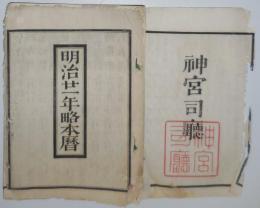 明治廿一年略本暦
神宮司廳
神宮
司廳